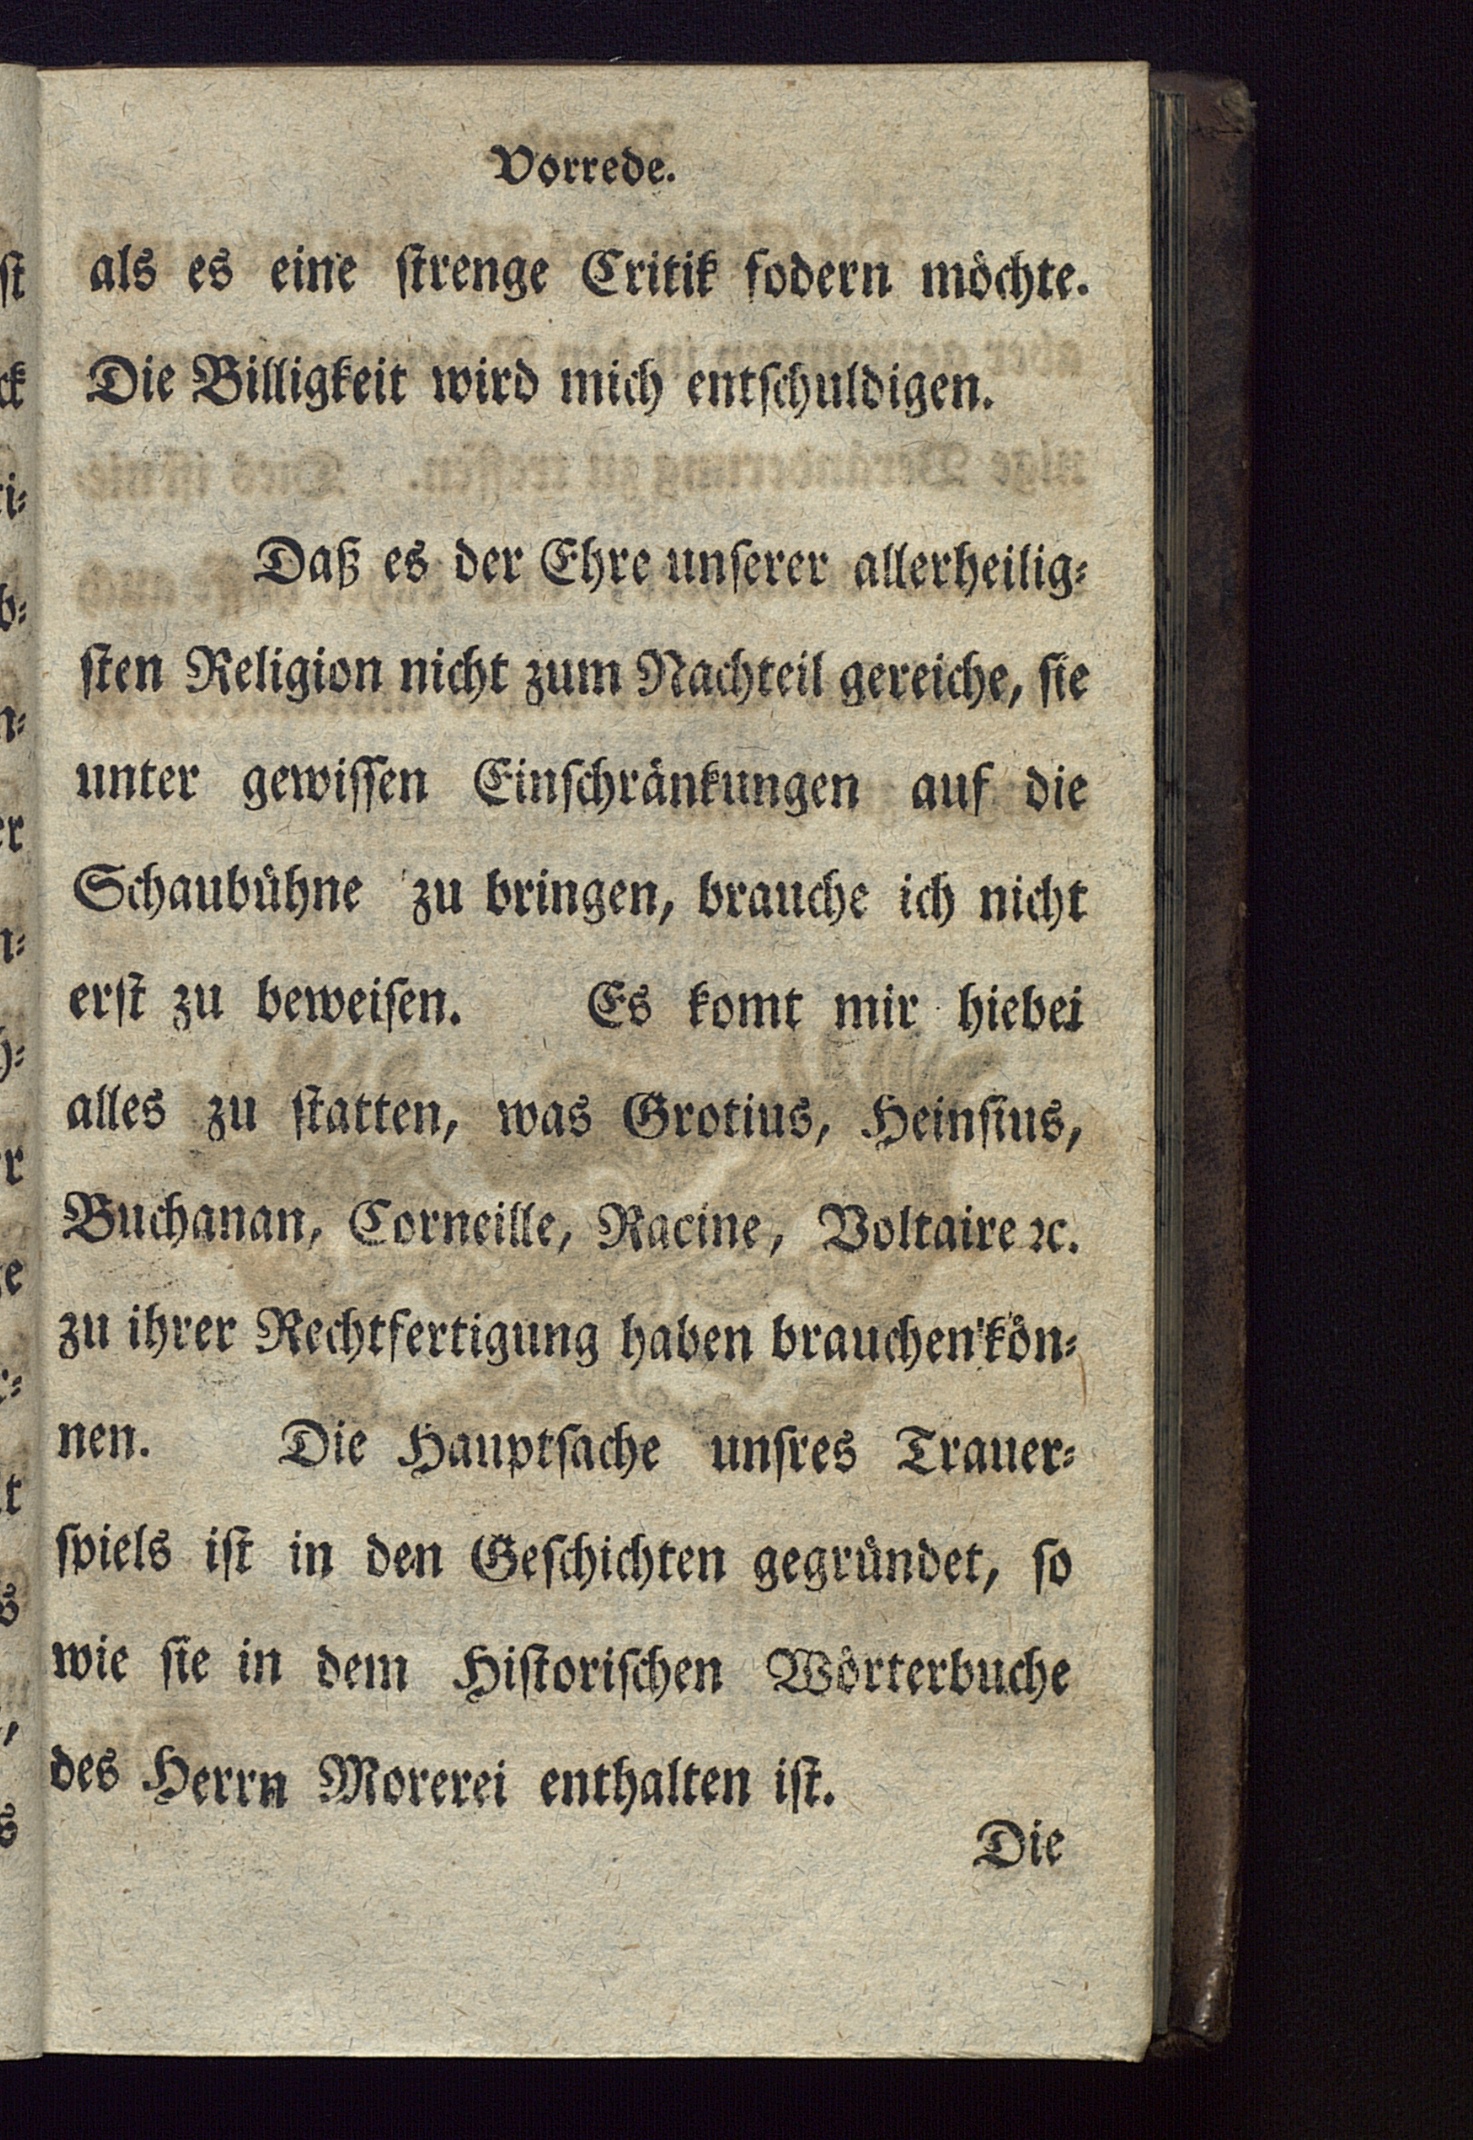 Vorrede.
als es eine ſtrenge Critik fodern möchte.
Die Billigkeit wird mich entſchuldigen.
Daß es der Ehre unſerer allerheilig⸗
ſten Religion nicht zum Nachteil gereiche, ſie
unter gewiſſen Einſchränkungen auf die
Schaubühne zu bringen, brauche ich nicht
erſt zu beweiſen. Es komt mir hiebei
alles zu ſtatten, was Grotius, Heinſius,
Buchanan, Corneille, Racine, Voltaire ꝛc.
zu ihrer Rechtfertigung haben brauchen kön⸗
nen. Die Hauptſache unſres Trauer⸗
ſpiels iſt in den Geſchichten gegründet, ſo
wie ſie in dem Hiſtoriſchen Wörterbuche
des Herrn Morerei enthalten iſt.
Die